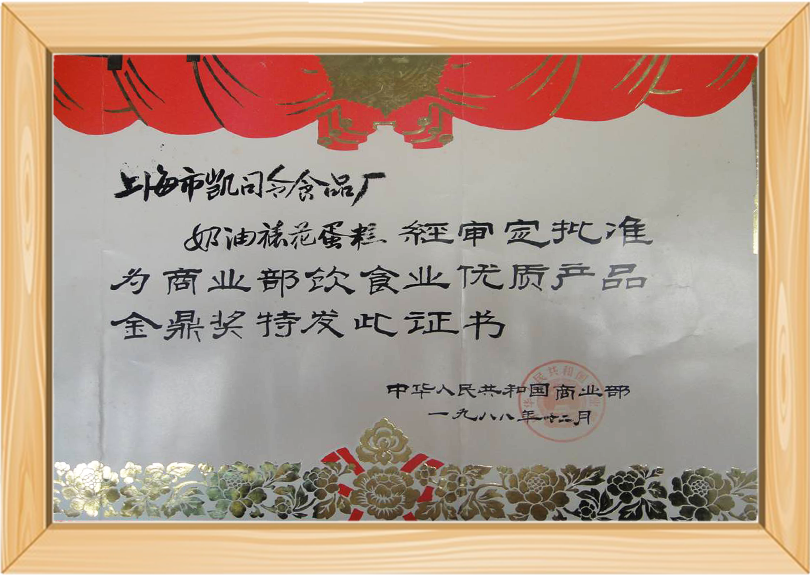 上海市凯司令食品厂
奶油裱花蛋糕 經审定批准
为商业部饮食业优质产品
金鼎奖特发此证书
中华人民共和国商业部
一九八八年十二月